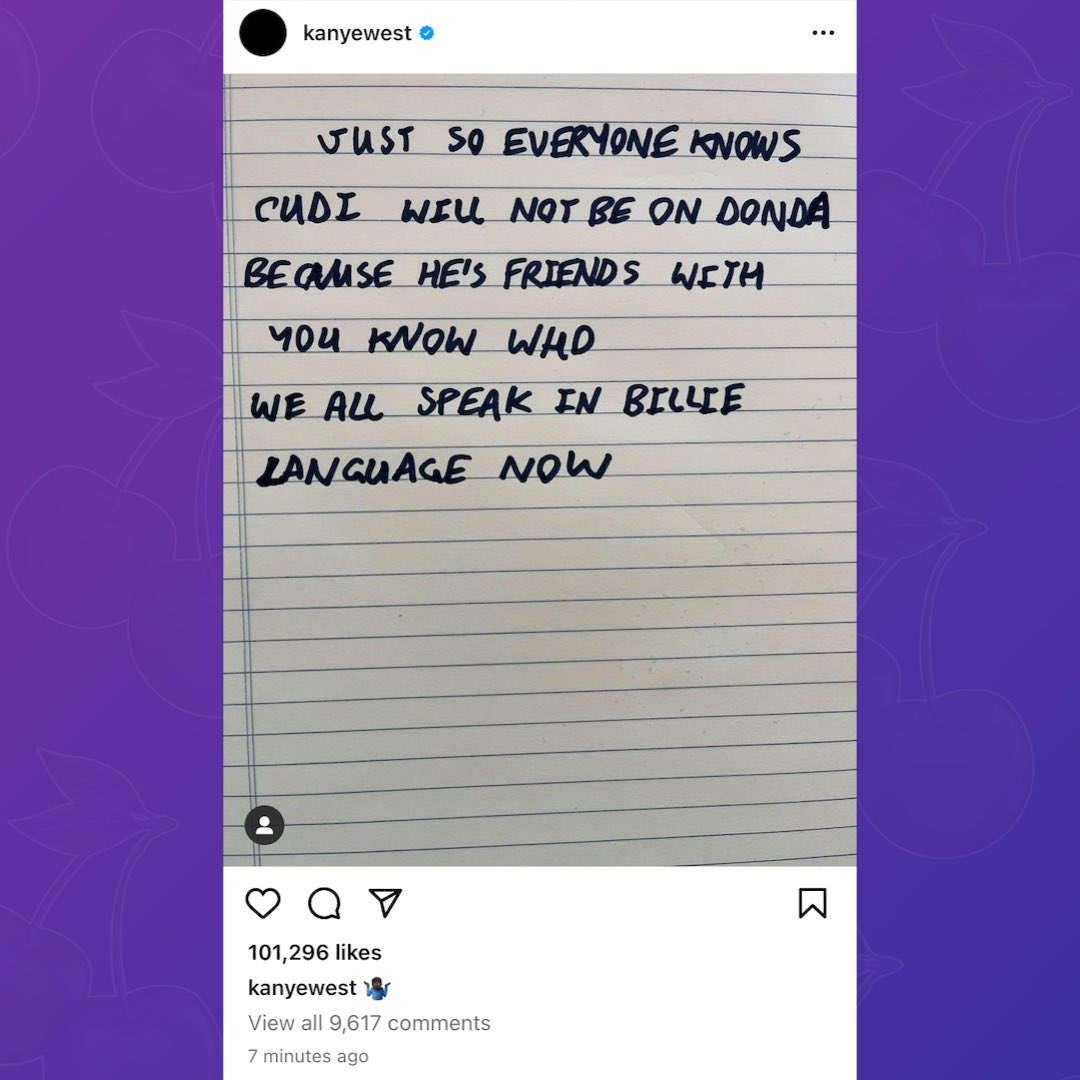 kanyewest
JUST SO EVERYONE KNOWS
CUDI WILL NOT BE ON DONDA
BECAUSE HE'S FRIENDS WITH
YOU KNOW WHO
WE ALL SPEAK IN BILLIE
LANGUAGE NOW
101,296 likes
kanyewest 🤷🏿‍♂️
View all 9,617 comments
7 minutes ago